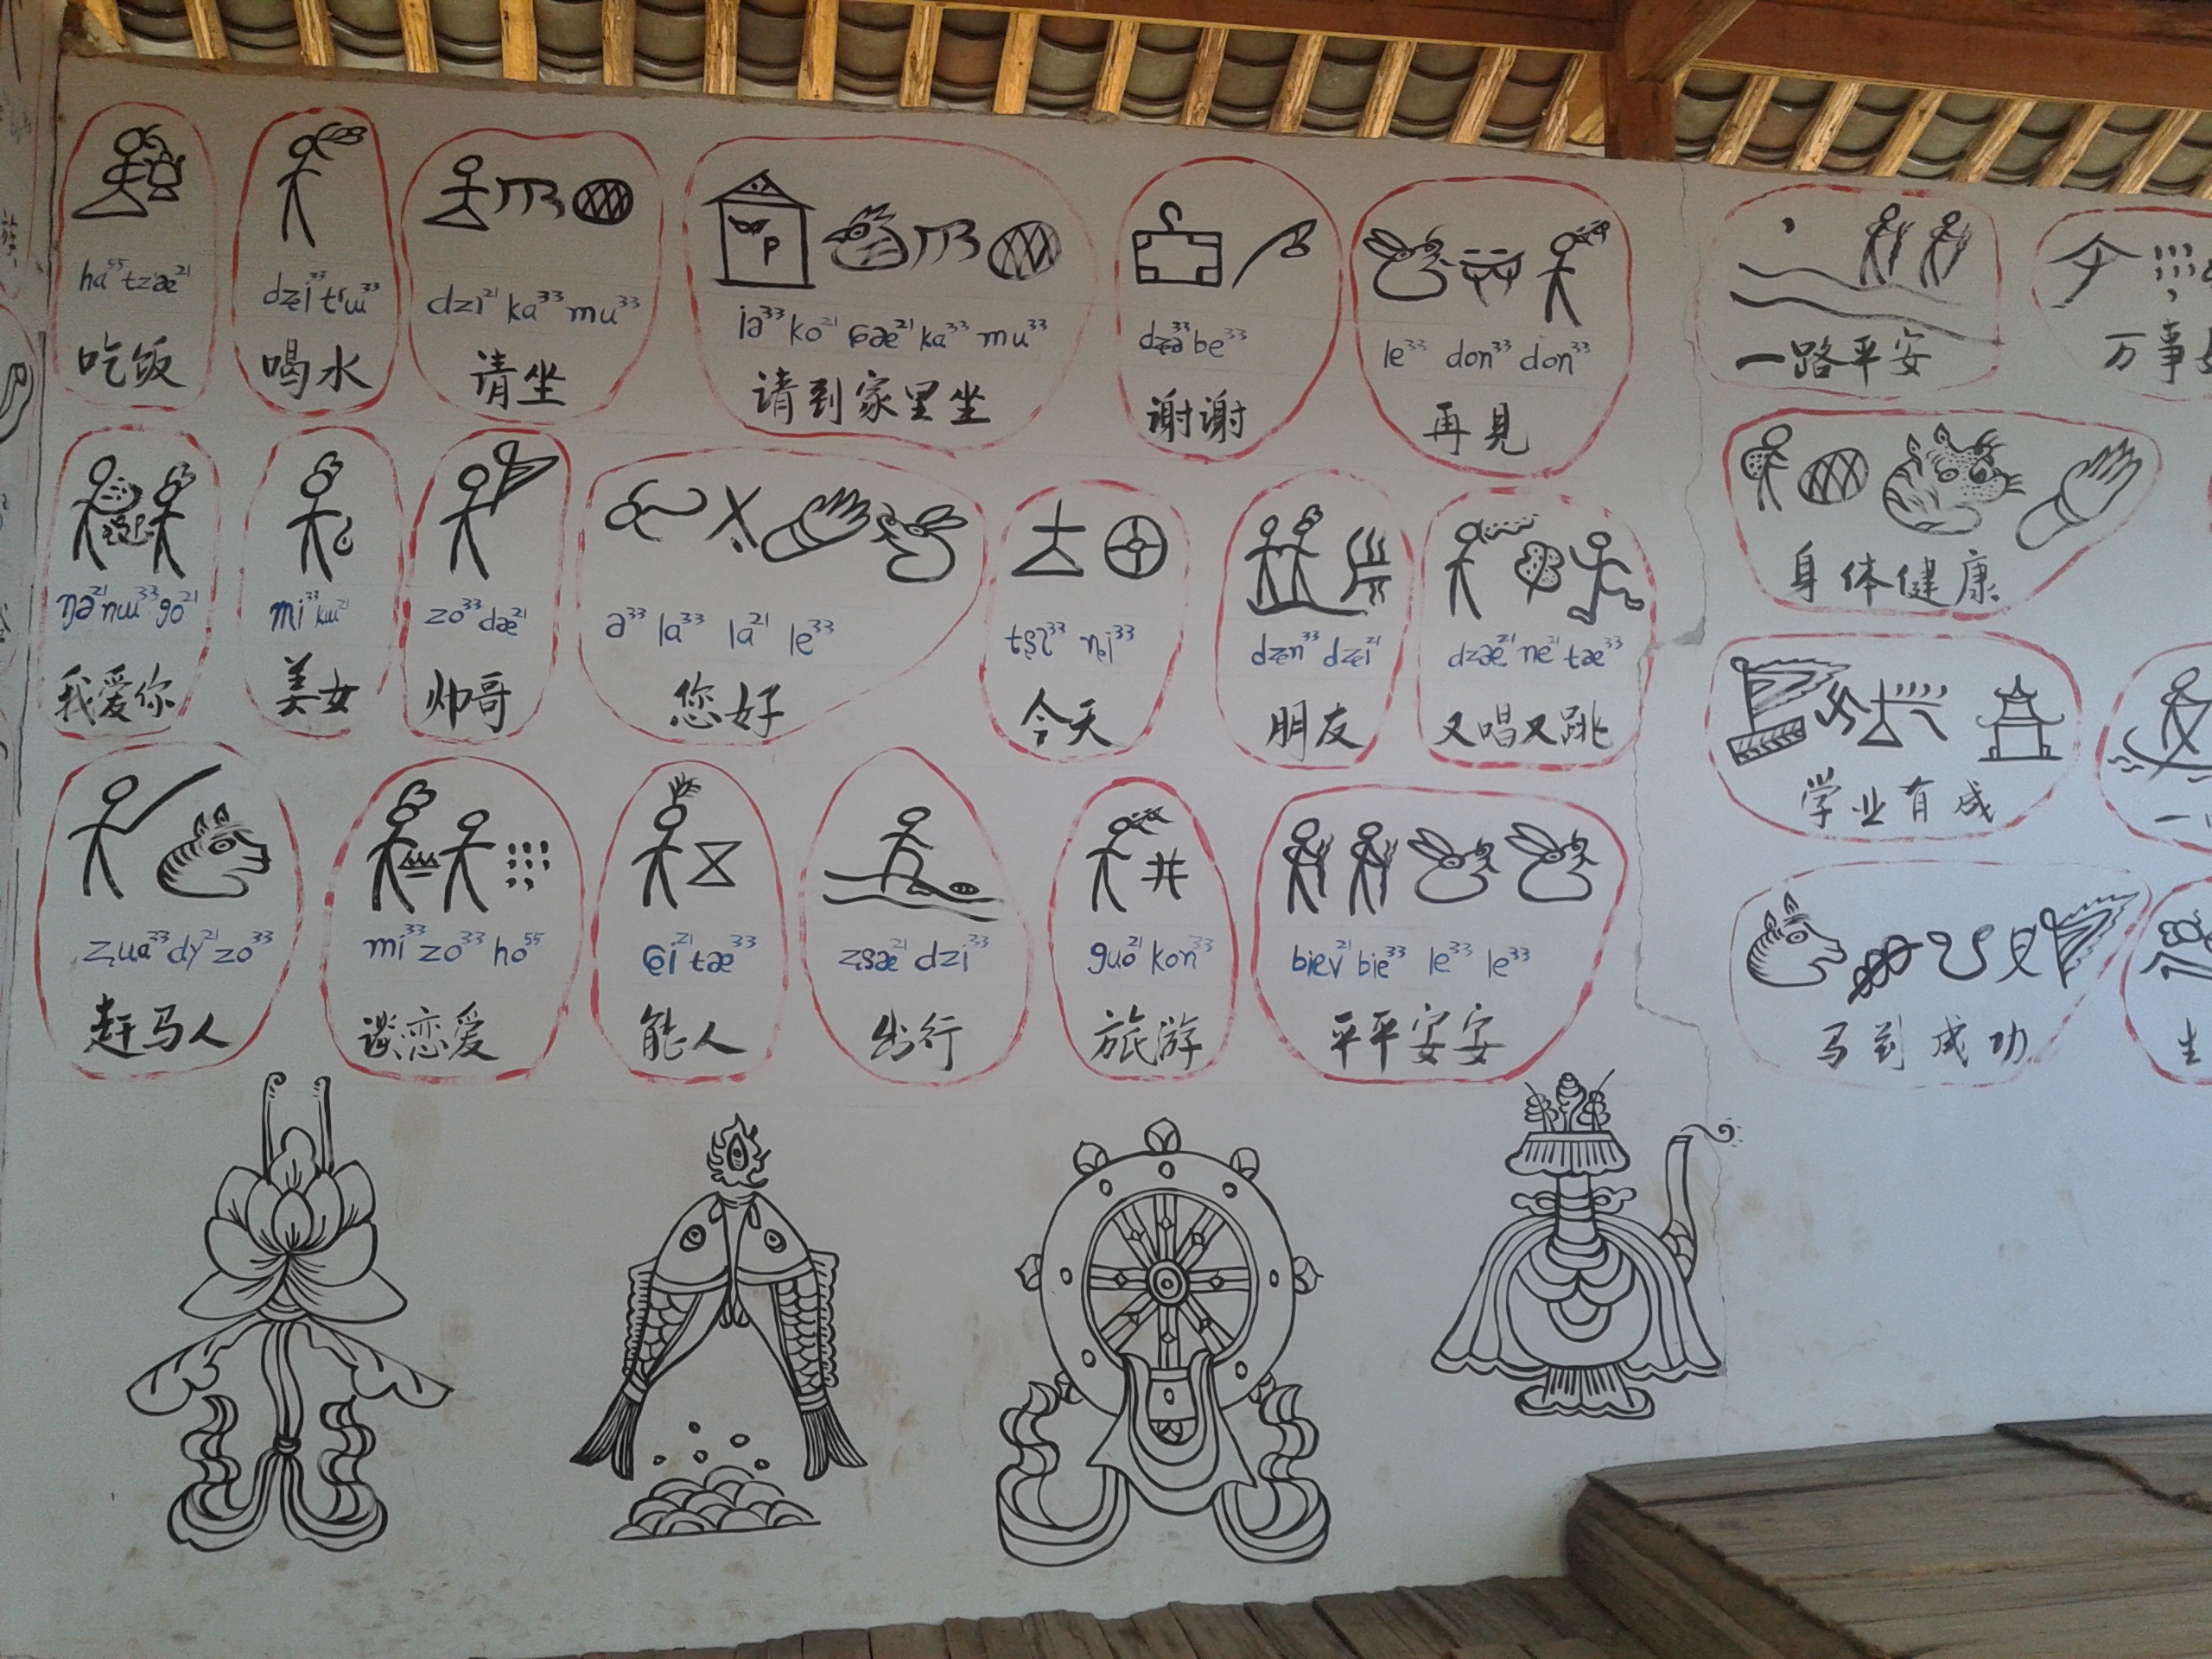 ha⁵⁵ tzæ²¹
吃饭
喝水
dzi²¹ ka³³ mu³³
请坐
ia³³ ko²¹ ɕæ²¹ ka³³ mu³³
请到家里坐
be³³
谢谢
le³³ don³³ don³³
再見
一路平安
万事
ŋə²¹ nɯ³³ go²¹
我爱你
mi³³ kɯ²¹
美女
zo³³ dæ²¹
帅哥
ə³³ la³³ la²¹ le³³
您好
tʂʅ³³ ȵi³³
今天
dzən³³ dzei²¹
朋友
dzæ²¹ ne²¹ tæ³³
又唱又跳
身体健康
学业有成
一
ʐua³³ dy²¹ zo³³
赶马人
mi³³ zo³³ ho⁵⁵
谈恋爱
ɕi²¹ tæ³³
能人
dzi³³
出行
guo²¹ kon³³
旅游
bie³³ le³³ le³³
平平安安
马到成功
生